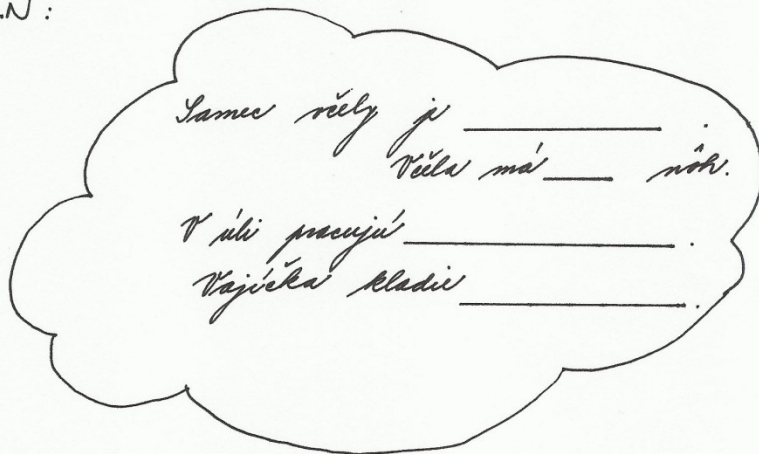 .N :
Samec včely je __________ .
Včela má ____ nôh.
V úli pracujú __________ .
Vajíčka kladie __________ .